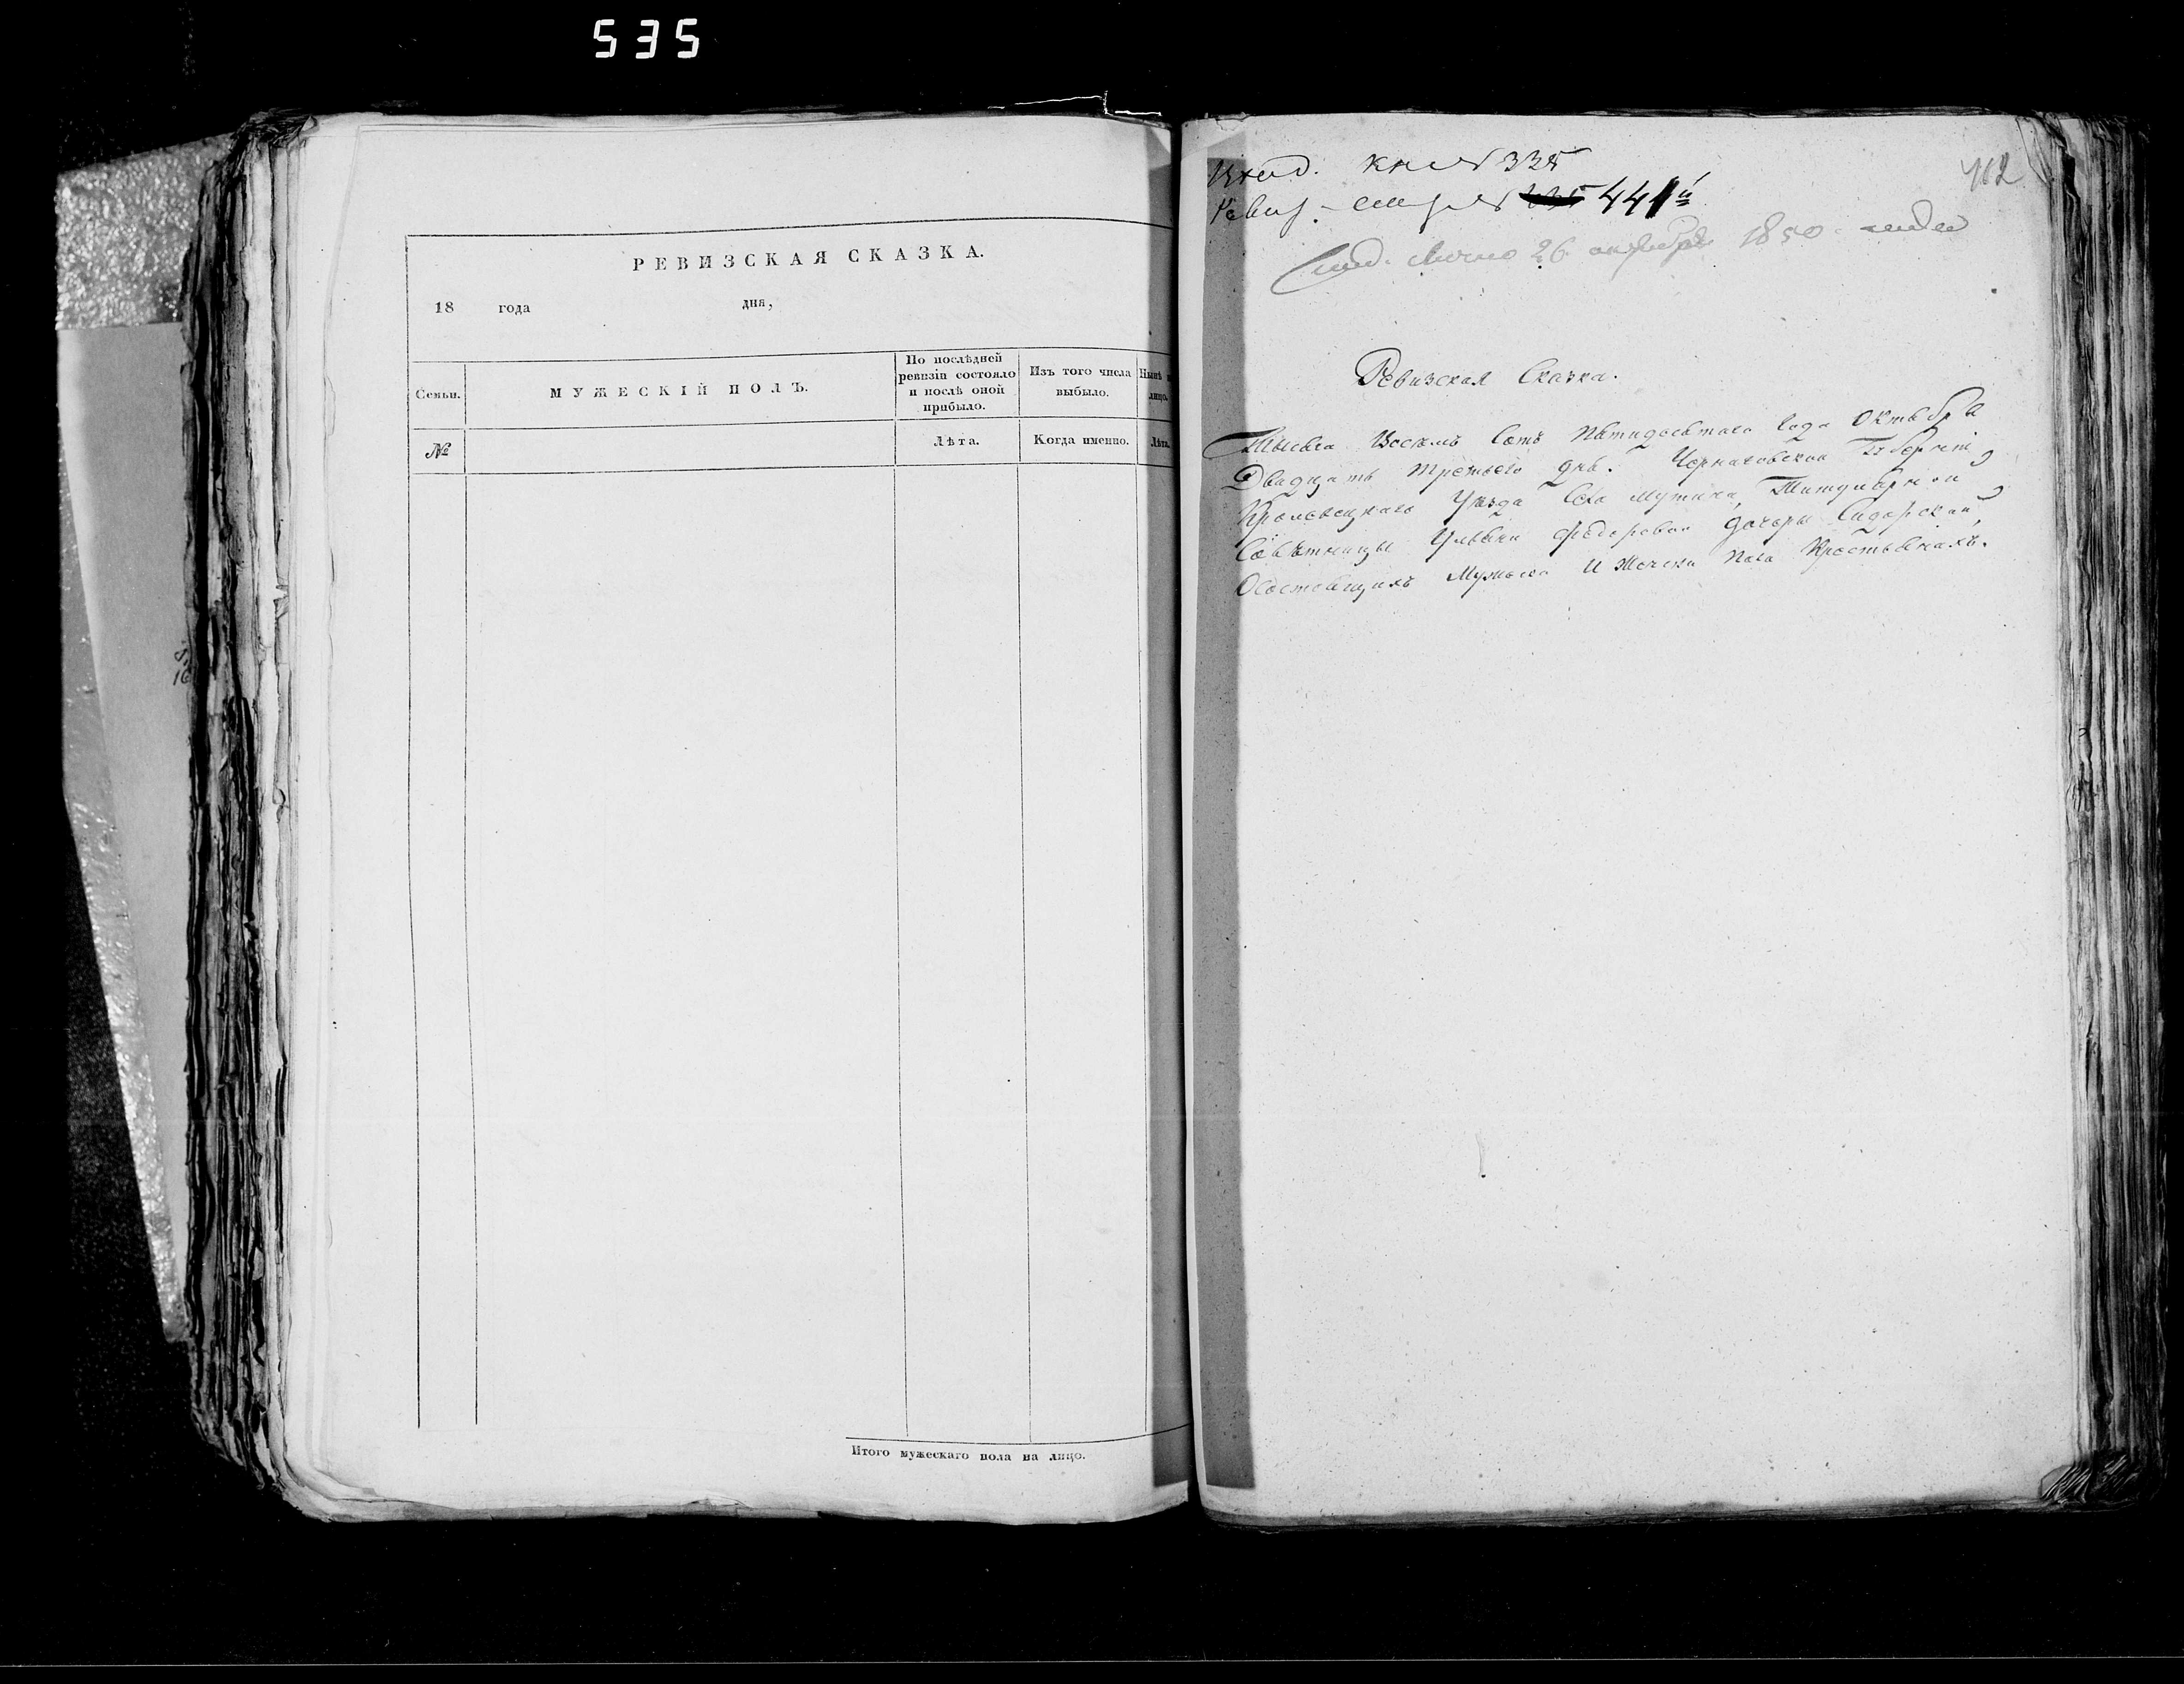 535
РЕВИЗСКАЯ СКАЗКА.
18 года дня,
Семьи.
МУЖЕСКІЙ ПОЛЪ.
По послѣдней
ревизіи состояло
и послѣ оной
прибыло.
Изъ того числа
выбыло.
Нынѣ
лицо.
№
Лѣта.
Когда именно.
Лѣта.
Итого мужескаго пола на лицо.
Вход. кн № 335
441й
412
26 октября 1850
Ревизская Сказка.
Тысяча Восемь Сотъ Пятидесятаго Года Октября
Двадцать третьего дня. Черниговской Губерніи
Кролевецкаго Уѣзда Села Мутина, Титулярной
Совѣтницы Ульяни Федоровой дочери Сидорской,
О состоящихъ Мужеска И Женска Пола Крестьянахъ.